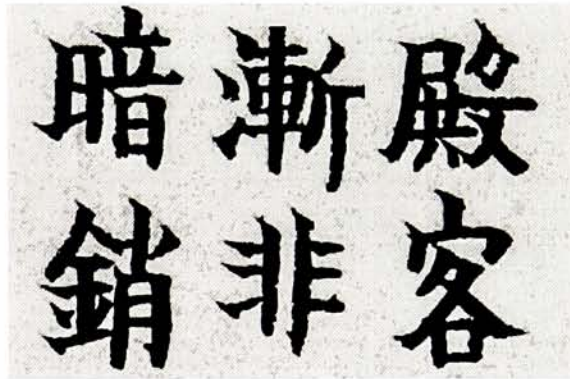 殿客
漸非
暗銷